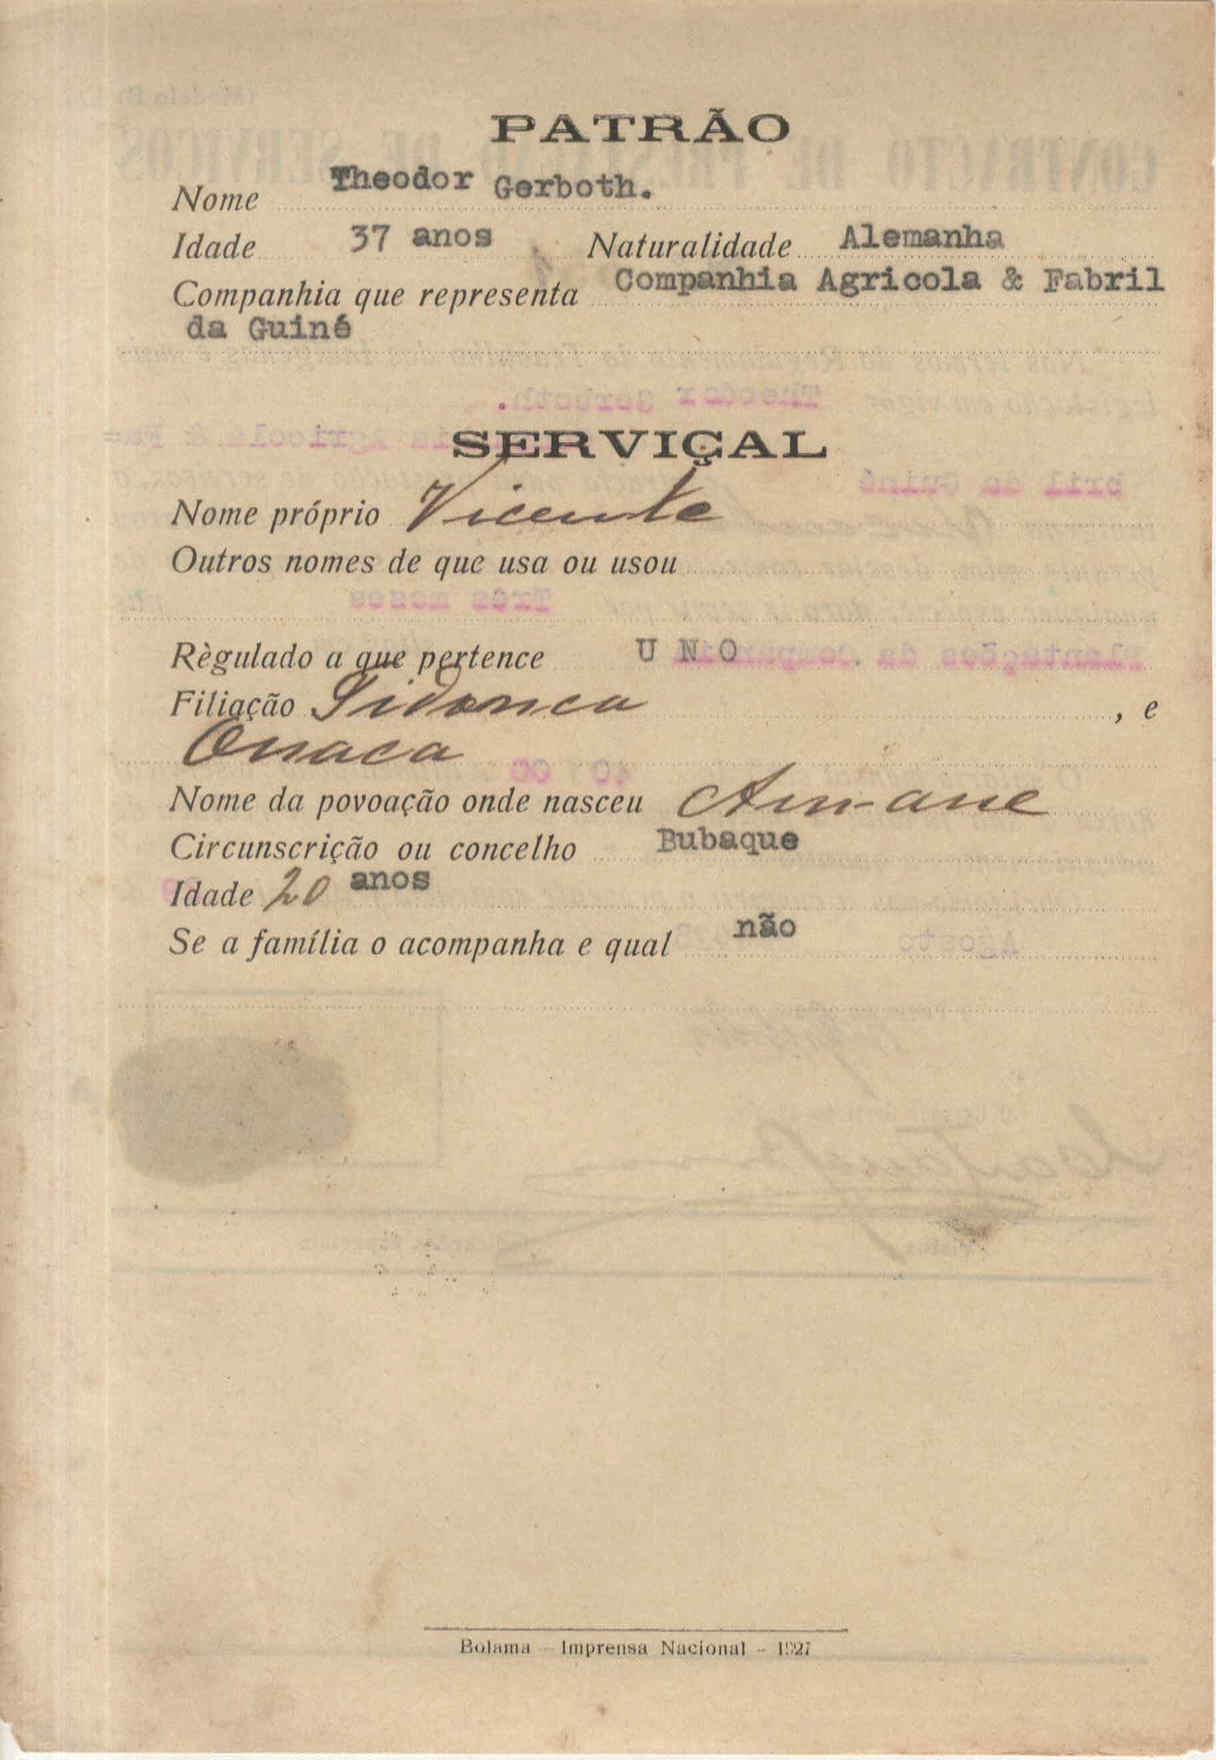 PATRÃO
Nome Theodor Gerboth.
Idade 37 anos Naturalidade Alemanha
Companhia que representa Companhia Agricola & Fabril
da Guiné
SERVIÇAL
Nome próprio Vicente
Outros nomes de que usa ou usou
Règulado a que pertence U N O
Filiação Sidonca , e
Onaca
Nome da povoação onde nasceu An-ane
Circunscrição ou concelho Bubaque
Idade 20 anos
Se a família o acompanha e qual não
Bolama — Imprensa Nacional — 1927